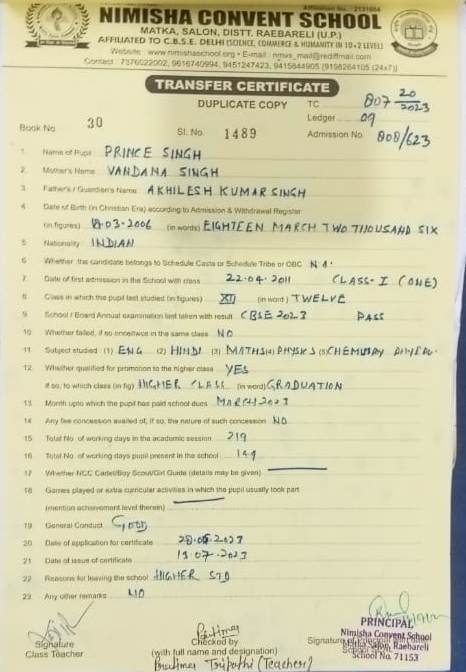 Affiliation No. : 2131054
NIMISHA CONVENT SCHOOL
MATKA, SALON, DISTT. RAEBARELI (U.P.)
AFFILIATED TO C.B.S.E. DELHI (SCIENCE, COMMERCE & HUMANITY IN 10+2 LEVEL)
Website : www.nimishaconventschool.org • E-mail : nmvs_mail@rediffmail.com
Contact : 7376022002, 9616740994, 9451247423, 9415844905 (9198264105 (24×7))
TRANSFER CERTIFICATE
DUPLICATE COPY TC 807 20/2023
Ledger 09
Book No. 30 Sl. No. 1489 Admission No. 808/623
1 Name of Pupil PRINCE SINGH
2 Mother's Name VANDANA SINGH
3 Father's / Guardian's Name AKHILESH KUMAR SINGH
4 Date of Birth (in Christian Era) according to Admission & Withdrawal Register
(in figures) 18-03-2006 (in words) EIGHTEEN MARCH TWO THOUSAND SIX
5 Nationality INDIAN
6 Whether the candidate belongs to Schedule Caste or Schedule Tribe or OBC N.A.
7 Date of first admission in the School with class 22.04.2011 CLASS-I (ONE)
8 Class in which the pupil last studied (in figures) XII (in word) TWELVE
9 School / Board Annual examination last taken with result CBSE 2023 PASS
10 Whether failed, if so once/twice in the same class NO
11 Subject studied (1) ENG (2) HINDI (3) MATHS (4) PHYSICS (5) CHEMISTRY
12 Whether qualified for promotion to the higher class YES
if so, to which class (in fig) HIGHER CLASS (in word) GRADUATION
13 Month upto which the pupil has paid school dues MARCH 2023
14 Any fee concession availed of, if so, the nature of such concession NO
15 Total No. of working days in the academic session 219
16 Total No. of working days pupil present in the school 149
17 Whether NCC Cadet/Boy Scout/Girl Guide (details may be given)
18 Games played or extra curricular activities in which the pupil usually took part
(mention achievement level therein)
19 General Conduct GOOD
20 Date of application for certificate 2023
21 Date of issue of certificate 13.07.2023
22 Reasons for leaving the school HIGHER STD
23 Any other remarks NO
PRINCIPAL
Nimisha Convent School
Matka Salon, Raebareli
School No. 71153
Signature
Class Teacher
Pratima
Checked by
(with full name and designation)
Pratima Tripathi (Teacher)
Signature of